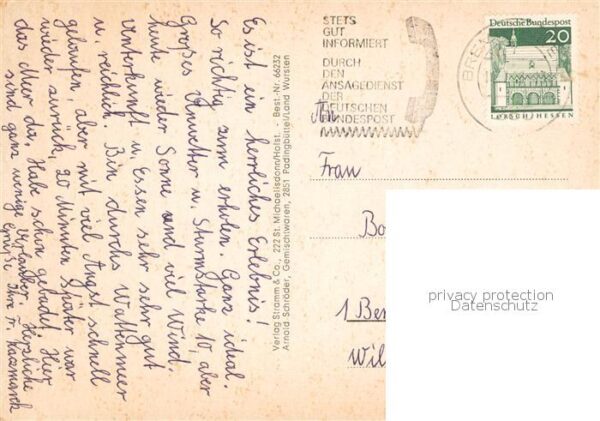 Es ist ein herrliches Erlebnis!
So richtig zum erholen. Ganz ideal.
Großes Unwetter u. Sturmstärke 10, aber
heute wieder Sonne und viel Wind.
Unterkunft u. Essen sehr sehr gut
u. reichlich. Bin durchs Wattenmeer
gelaufen, aber mit viel Angst schnell
wieder zurück, 20 Minuten später war
das Meer da. Habe schon gebadet. Hier
sind ganz wenige Urlauber. Herzliche
Grüße Ihre Fr. Kaczmarek
Verlag Stramm & Co., 222 St. Michaelisdonn/Holst. - Best.-Nr. 66232
Arnold Schröder, Gemischtwaren, 2851 Padingbüttel/Land Wursten
STETS
GUT
INFORMIERT
DURCH
DEN
ANSAGEDIENST
DER
DEUTSCHEN
BUNDESPOST
BREM
Deutsche Bundespost
20
LORSCH/HESSEN
An
Frau
Bo
1 Ber
Wil
privacy protection
Datenschutz